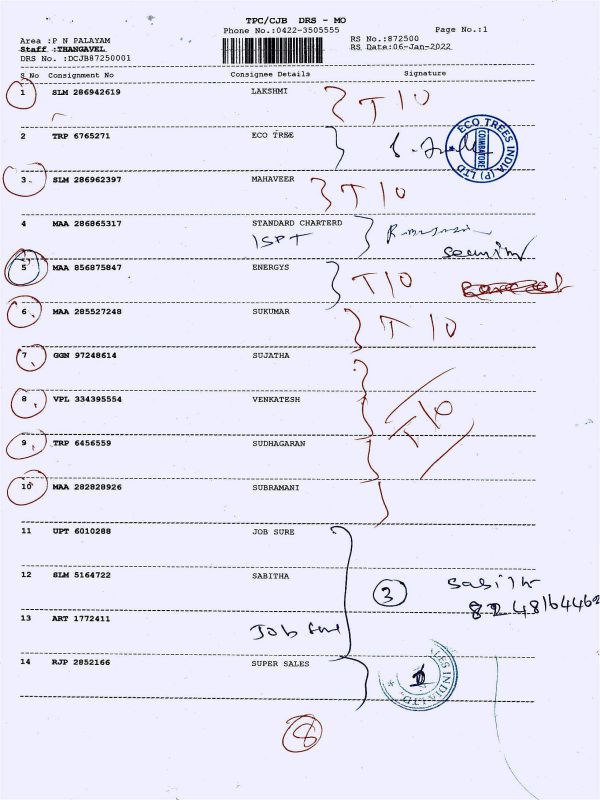 TPC/CJB DRS - MO
Phone No.:0422-3505555 Page No.:1
Area :P N PALAYAM RS No.:872500
Staff :THANGAVEL RS Date:06-Jan-2022
DRS No. :DCJB87250001
S No Consignment No Consignee Details Signature
1 SLM 286942619 LAKSHMI T/O
2 TRP 6765271 ECO TREE
ECO TREES INDIA (P) LTD COIMBATORE
3 SLM 286962397 MAHAVEER T/O
4 MAA 286865317 STANDARD CHARTERD
5 MAA 856875847 ENERGYS T/O
6 MAA 285527248 SUKUMAR T/O
7 GGN 97248614 SUJATHA
8 VPL 334395554 VENKATESH T/O
9 TRP 6456559 SUDHAGARAN
10 MAA 282828926 SUBRAMANI
11 UPT 6010288 JOB SURE
12 SLM 5164722 SABITHA 3
13 ART 1772411 Job Sure
14 RJP 2852166 SUPER SALES
LES INDIA LTD
8